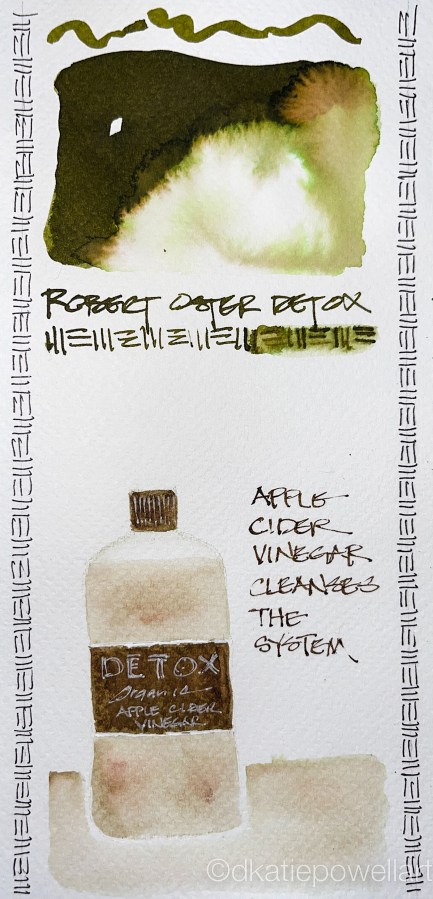 ROBERT OSTER DETOX
APPLE
CIDER
VINEGAR
CLEANSES
THE
SYSTEM
DETOX
Organic
APPLE CIDER
VINEGAR
©dkatiepowellart